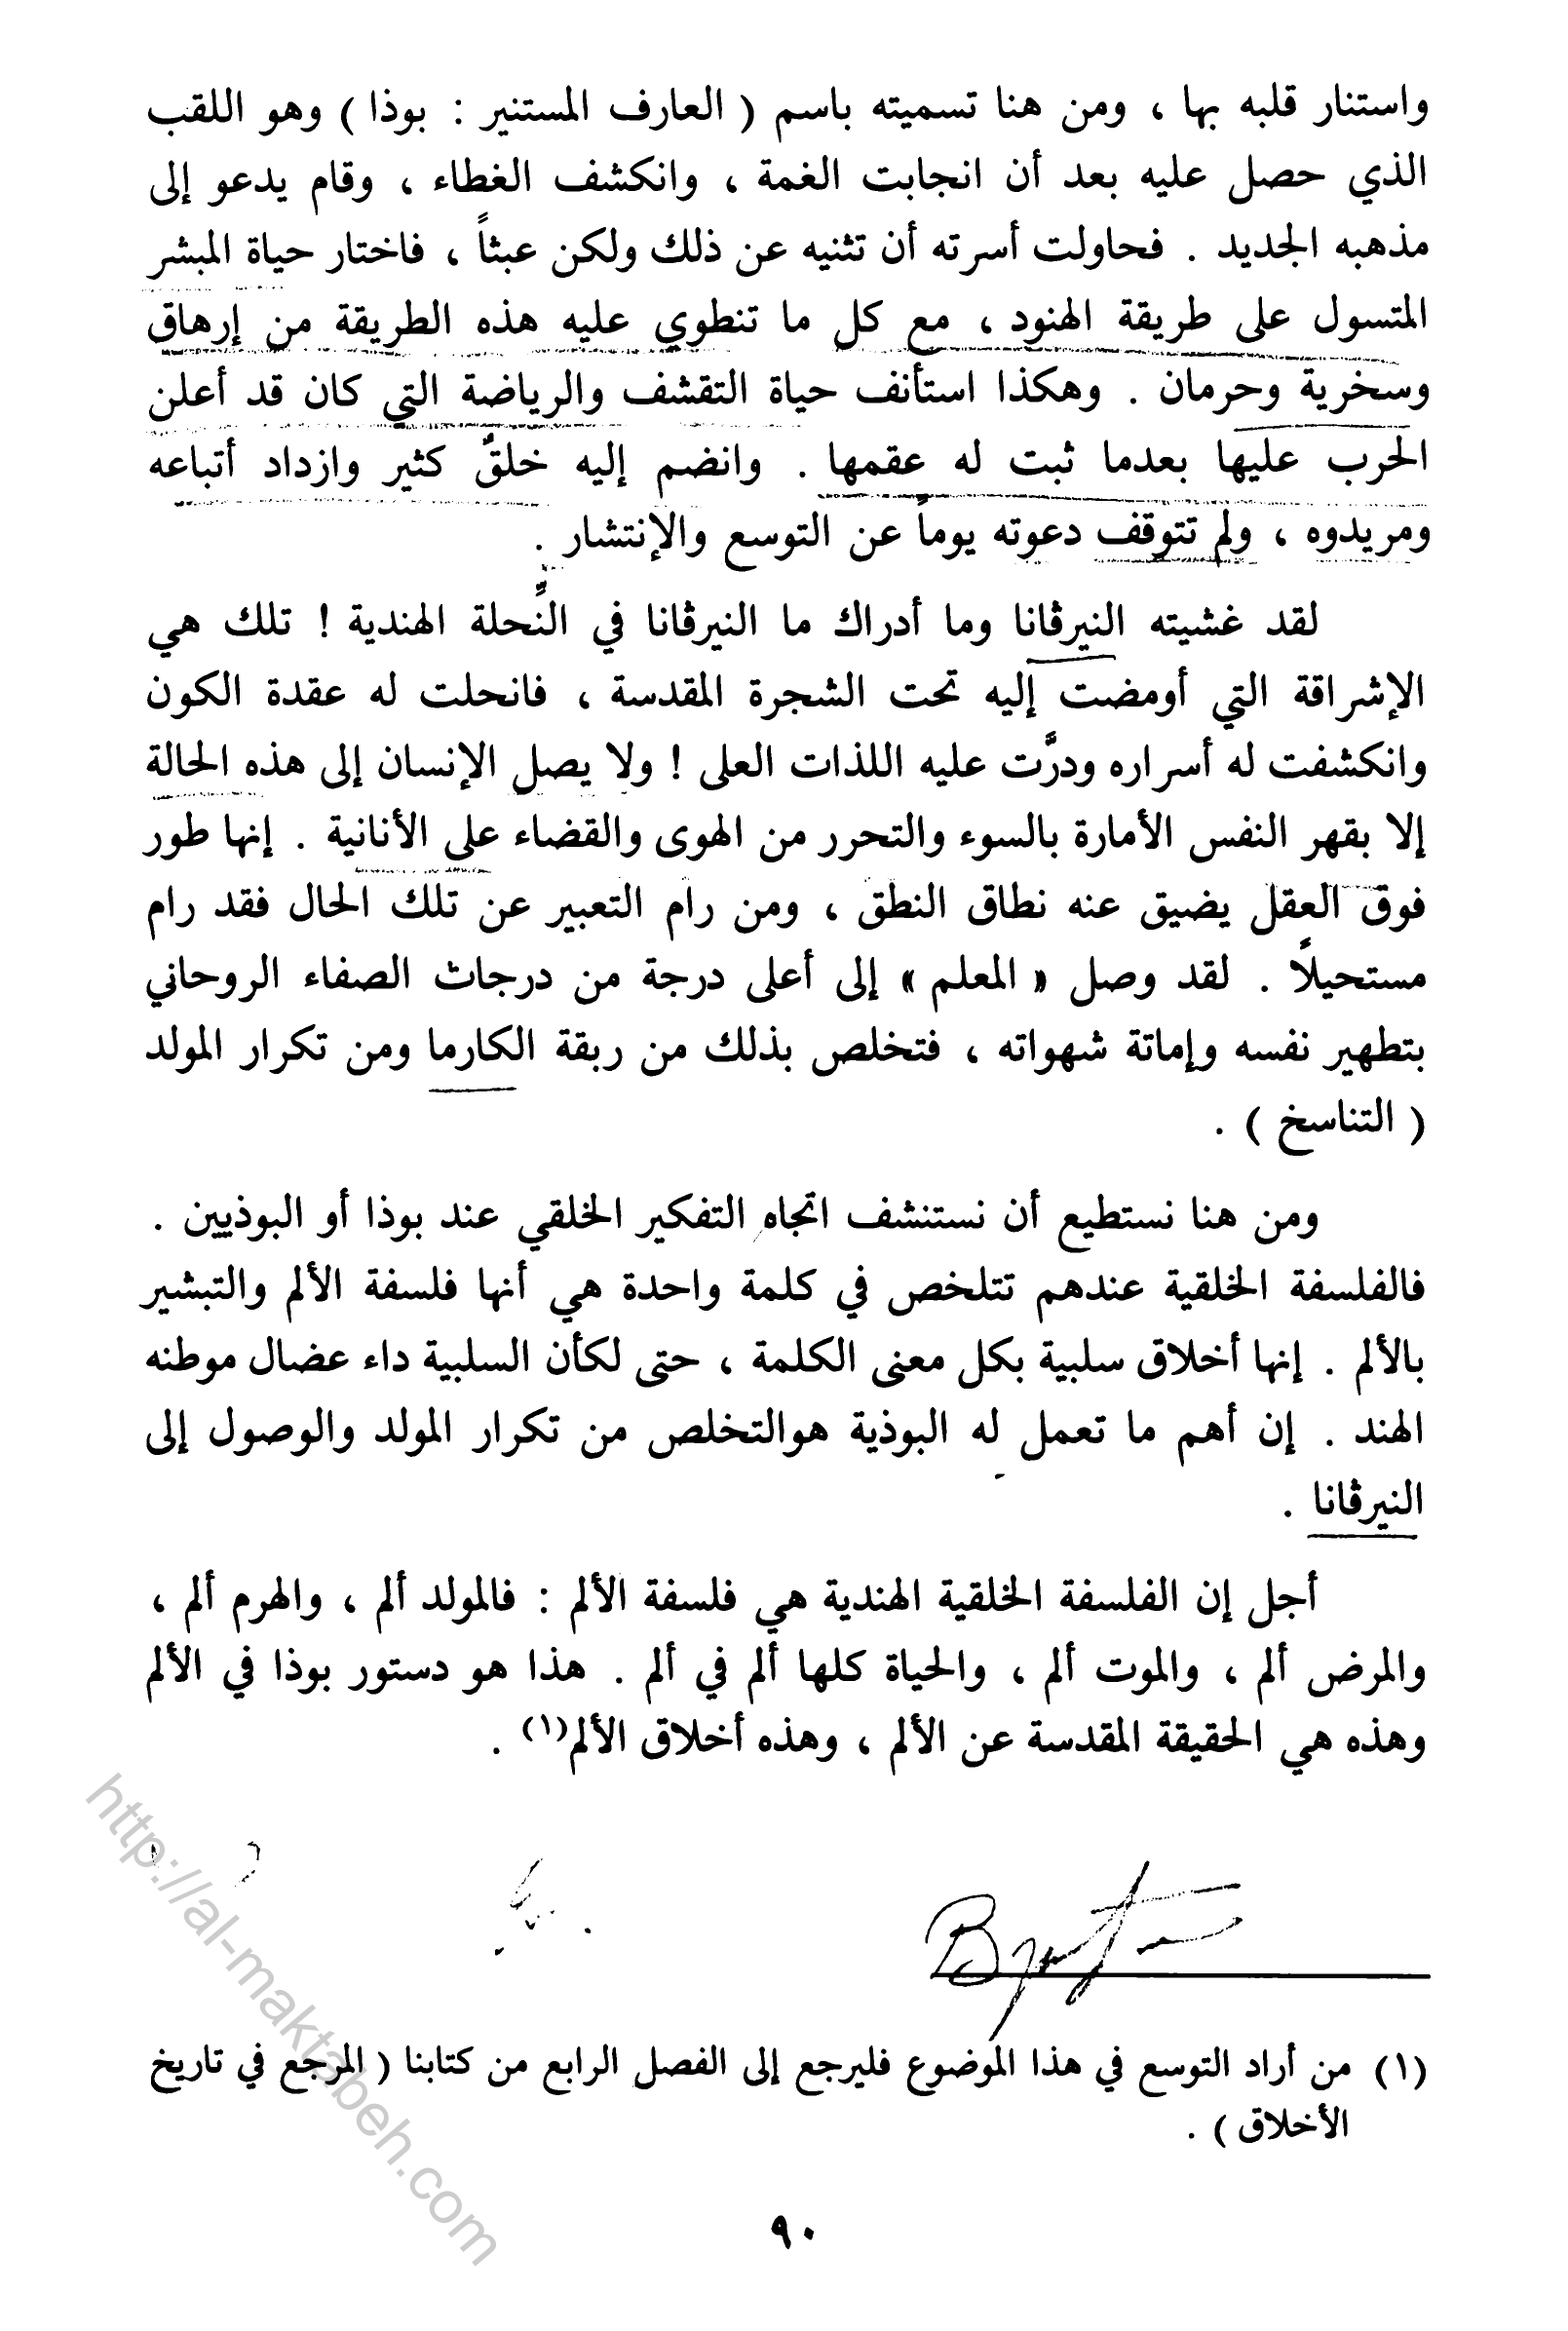 واستنار قلبه بها ، ومن هنا تسميته باسم ( العارف المستنير : بوذا ) وهو اللقب
الذي حصل عليه بعد أن انجابت الغمة ، وانكشف الغطاء ، وقام يدعو إلى
مذهبه الجديد . فحاولت أسرته أن تثنيه عن ذلك ولكن عبثاً ، فاختار حياة المبشر
المتسول على طريقة الهنود ، مع كل ما تنطوي عليه هذه الطريقة من إرهاق
وسخرية وحرمان . وهكذا استأنف حياة التقشف والرياضة التي كان قد أعلن
الحرب عليها بعدما ثبت له عقمها . وانضم إليه خلقٌ كثير وازداد أتباعه
ومريدوه ، ولم تتوقف دعوته يوماً عن التوسع والإنتشار .
لقد غشيته النيرڤانا وما أدراك ما النيرڤانا في النِّحلة الهندية ! تلك هي
الإشراقة التي أومضت إليه تحت الشجرة المقدسة ، فانحلت له عقدة الكون
وانكشفت له أسراره ودرَّت عليه اللذات العلى ! ولا يصل الإنسان إلى هذه الحالة
إلا بقهر النفس الأمارة بالسوء والتحرر من الهوى والقضاء على الأنانية . إنها طور
فوق العقل يضيق عنه نطاق النطق ، ومن رام التعبير عن تلك الحال فقد رام
مستحيلاً . لقد وصل « المعلم » إلى أعلى درجة من درجات الصفاء الروحاني
بتطهير نفسه وإماتة شهواته ، فتخلص بذلك من ربقة الكارما ومن تكرار المولد
( التناسخ ) .
ومن هنا نستطيع أن نستنشف اتجاه التفكير الخلقي عند بوذا أو البوذيين .
فالفلسفة الخلقية عندهم تتلخص في كلمة واحدة هي أنها فلسفة الألم والتبشير
بالألم . إنها أخلاق سلبية بكل معنى الكلمة ، حتى لكأن السلبية داء عضال موطنه
الهند . إن أهم ما تعمل له البوذية هوالتخلص من تكرار المولد والوصول إلى
النيرڤانا .
أجل إن الفلسفة الخلقية الهندية هي فلسفة الألم : فالمولد ألم ، والهرم ألم ،
والمرض ألم ، والموت ألم ، والحياة كلها ألم في ألم . هذا هو دستور بوذا في الألم
وهذه هي الحقيقة المقدسة عن الألم ، وهذه أخلاق الألم(١) .
(١) من أراد التوسع في هذا الموضوع فليرجع إلى الفصل الرابع من كتابنا ( المرجع في تاريخ
الأخلاق ) .
٩٠
http://al-maktabeh.com